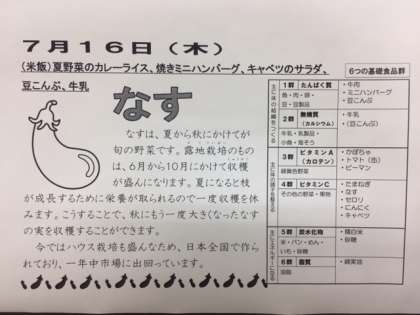 7月16日（木）
（米飯）夏野菜のカレーライス、焼きミニハンバーグ、キャベツのサラダ、
豆こんぶ、牛乳
なす
なすは、夏から秋にかけてが
旬の野菜です。露地栽培のもの
は、6月から10月にかけて収穫
が盛んになります。夏になると枝
が成長するために栄養が取られるので一度収穫を休
みます。こうすることで、秋にもう一度大きくなったなす
の実を収穫することができます。
今ではハウス栽培も盛んなため、日本全国で作ら
れており、一年中市場に出回っています。
6つの基礎食品群
主に体の組織をつくる
1群 たんぱく質
魚・肉・卵・
豆・豆製品
・牛肉
・ミニハンバーグ
・豆こんぶ
2群 無機質
（カルシウム）
牛乳・乳製品
小魚・海そう
・牛乳
・（豆こんぶ）
主に体の調子を整える
3群 ビタミンA
（カロテン）
緑黄色野菜
・かぼちゃ
・トマト（缶）
・ピーマン
4群 ビタミンC
その他の野菜・果物
・たまねぎ
・なす
・セロリ
・にんにく
・キャベツ
主にエネルギーになる
5群 炭水化物
米・パン・めん・
いも・砂糖
・精白米
・砂糖
6群 脂質
油脂
・綿実油